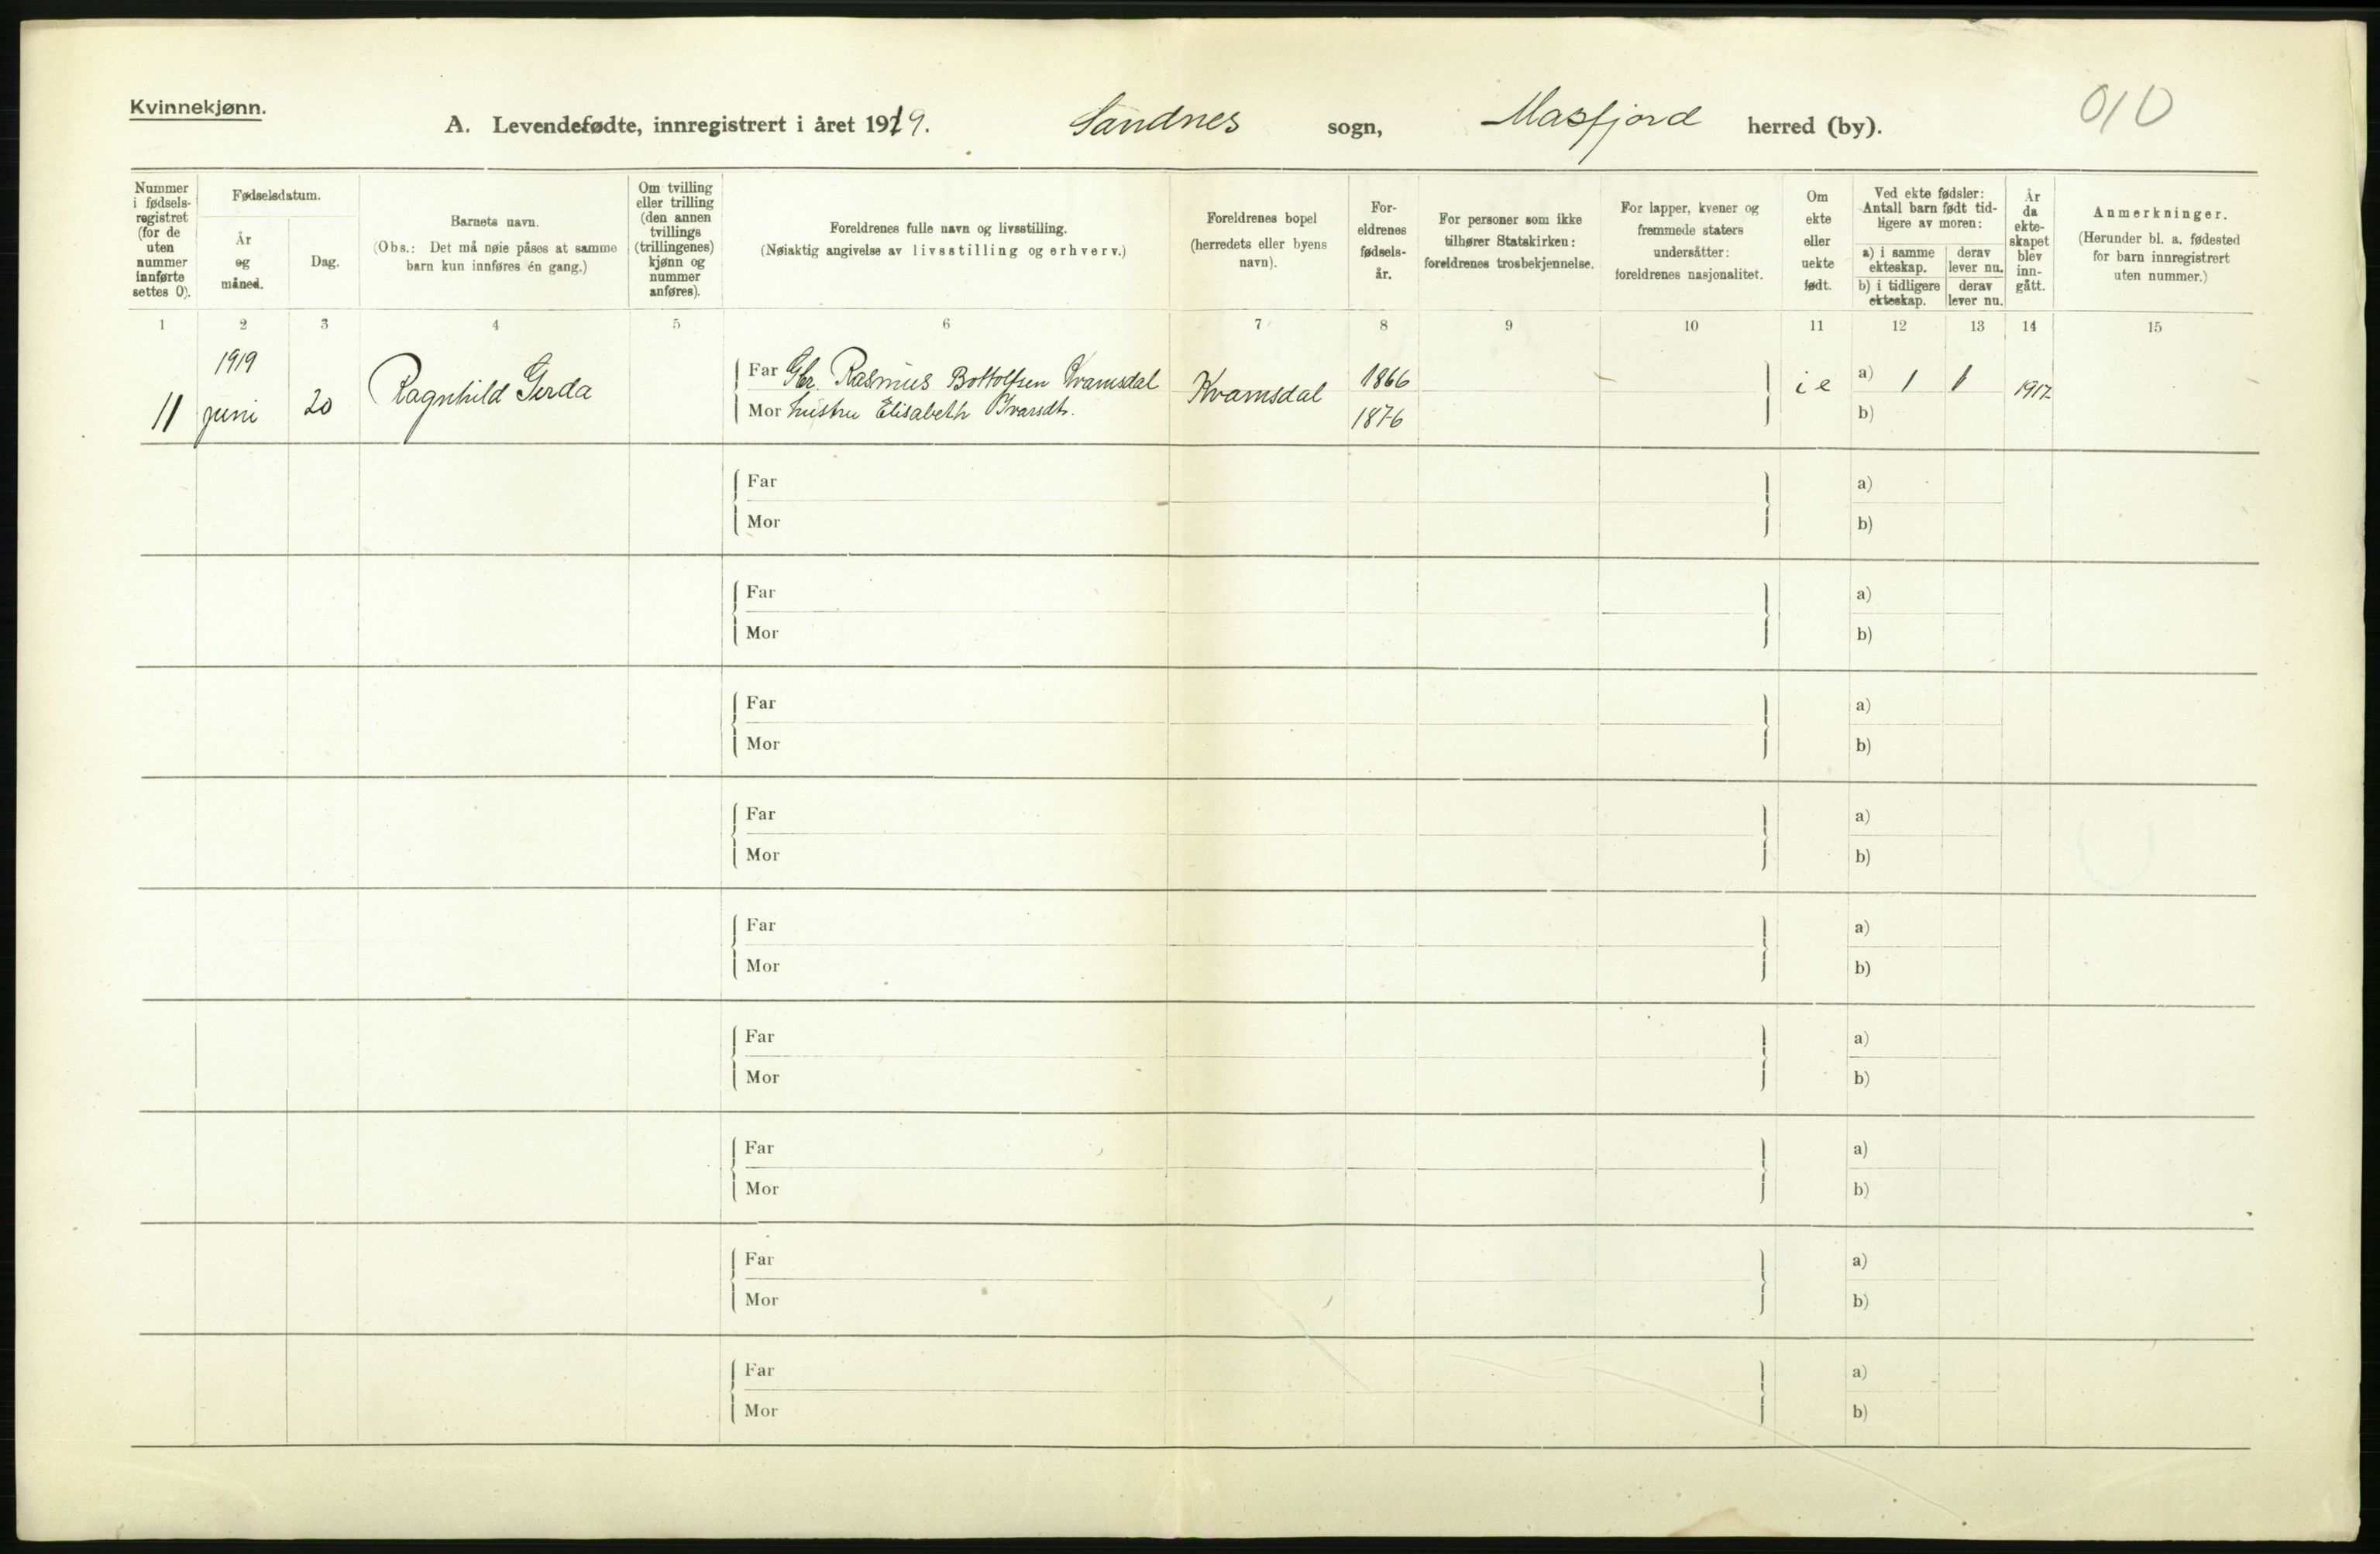 Kvinnekjønn.
A. Levendefødte, innregistrert i året 1919. Sandnes sogn, Masfjord herred (by). 010
Nummer i fødsels-registret (for de uten nummer innførte settes 0).
Fødselsdatum.
År og måned.
Dag.
Barnets navn.
(Obs.: Det må nøie påses at samme barn kun innføres én gang.)
Om tvilling eller trilling (den annen tvillings (trillingenes) kjønn og nummer anføres).
Foreldrenes fulle navn og livsstilling.
(Nøiaktig angivelse av livsstilling og erhverv.)
Foreldrenes bopel
(herredets eller byens navn).
For-eldrenes fødsels-år.
For personer som ikke tilhører Statskirken: foreldrenes trosbekjennelse.
For lapper, kvener og fremmede staters undersåtter: foreldrenes nasjonalitet.
Om ekte eller uekte født.
Ved ekte fødsler: Antall barn født tid-ligere av moren:
a) i samme ekteskap.
derav lever nu.
b) i tidligere ekteskap.
derav lever nu.
År da ekte-skapet blev inn-gått.
Anmerkninger.
(Herunder bl. a. fødested for barn innregistrert uten nummer.)
1 2 3 4 5 6 7 8 9 10 11 12 13 14 15
1919
11 juni 20 Ragnhild Gerda
Far Gbr. Rasmus Bottolfsen Kvamsdal Kvamsdal 1866 i e a) 1 1 1917
Mor hustru Elisabeth Ivarsdtr. 1876 b)
Far a)
Mor b)
Far a)
Mor b)
Far a)
Mor b)
Far a)
Mor b)
Far a)
Mor b)
Far a)
Mor b)
Far a)
Mor b)
Far a)
Mor b)
Far a)
Mor b)